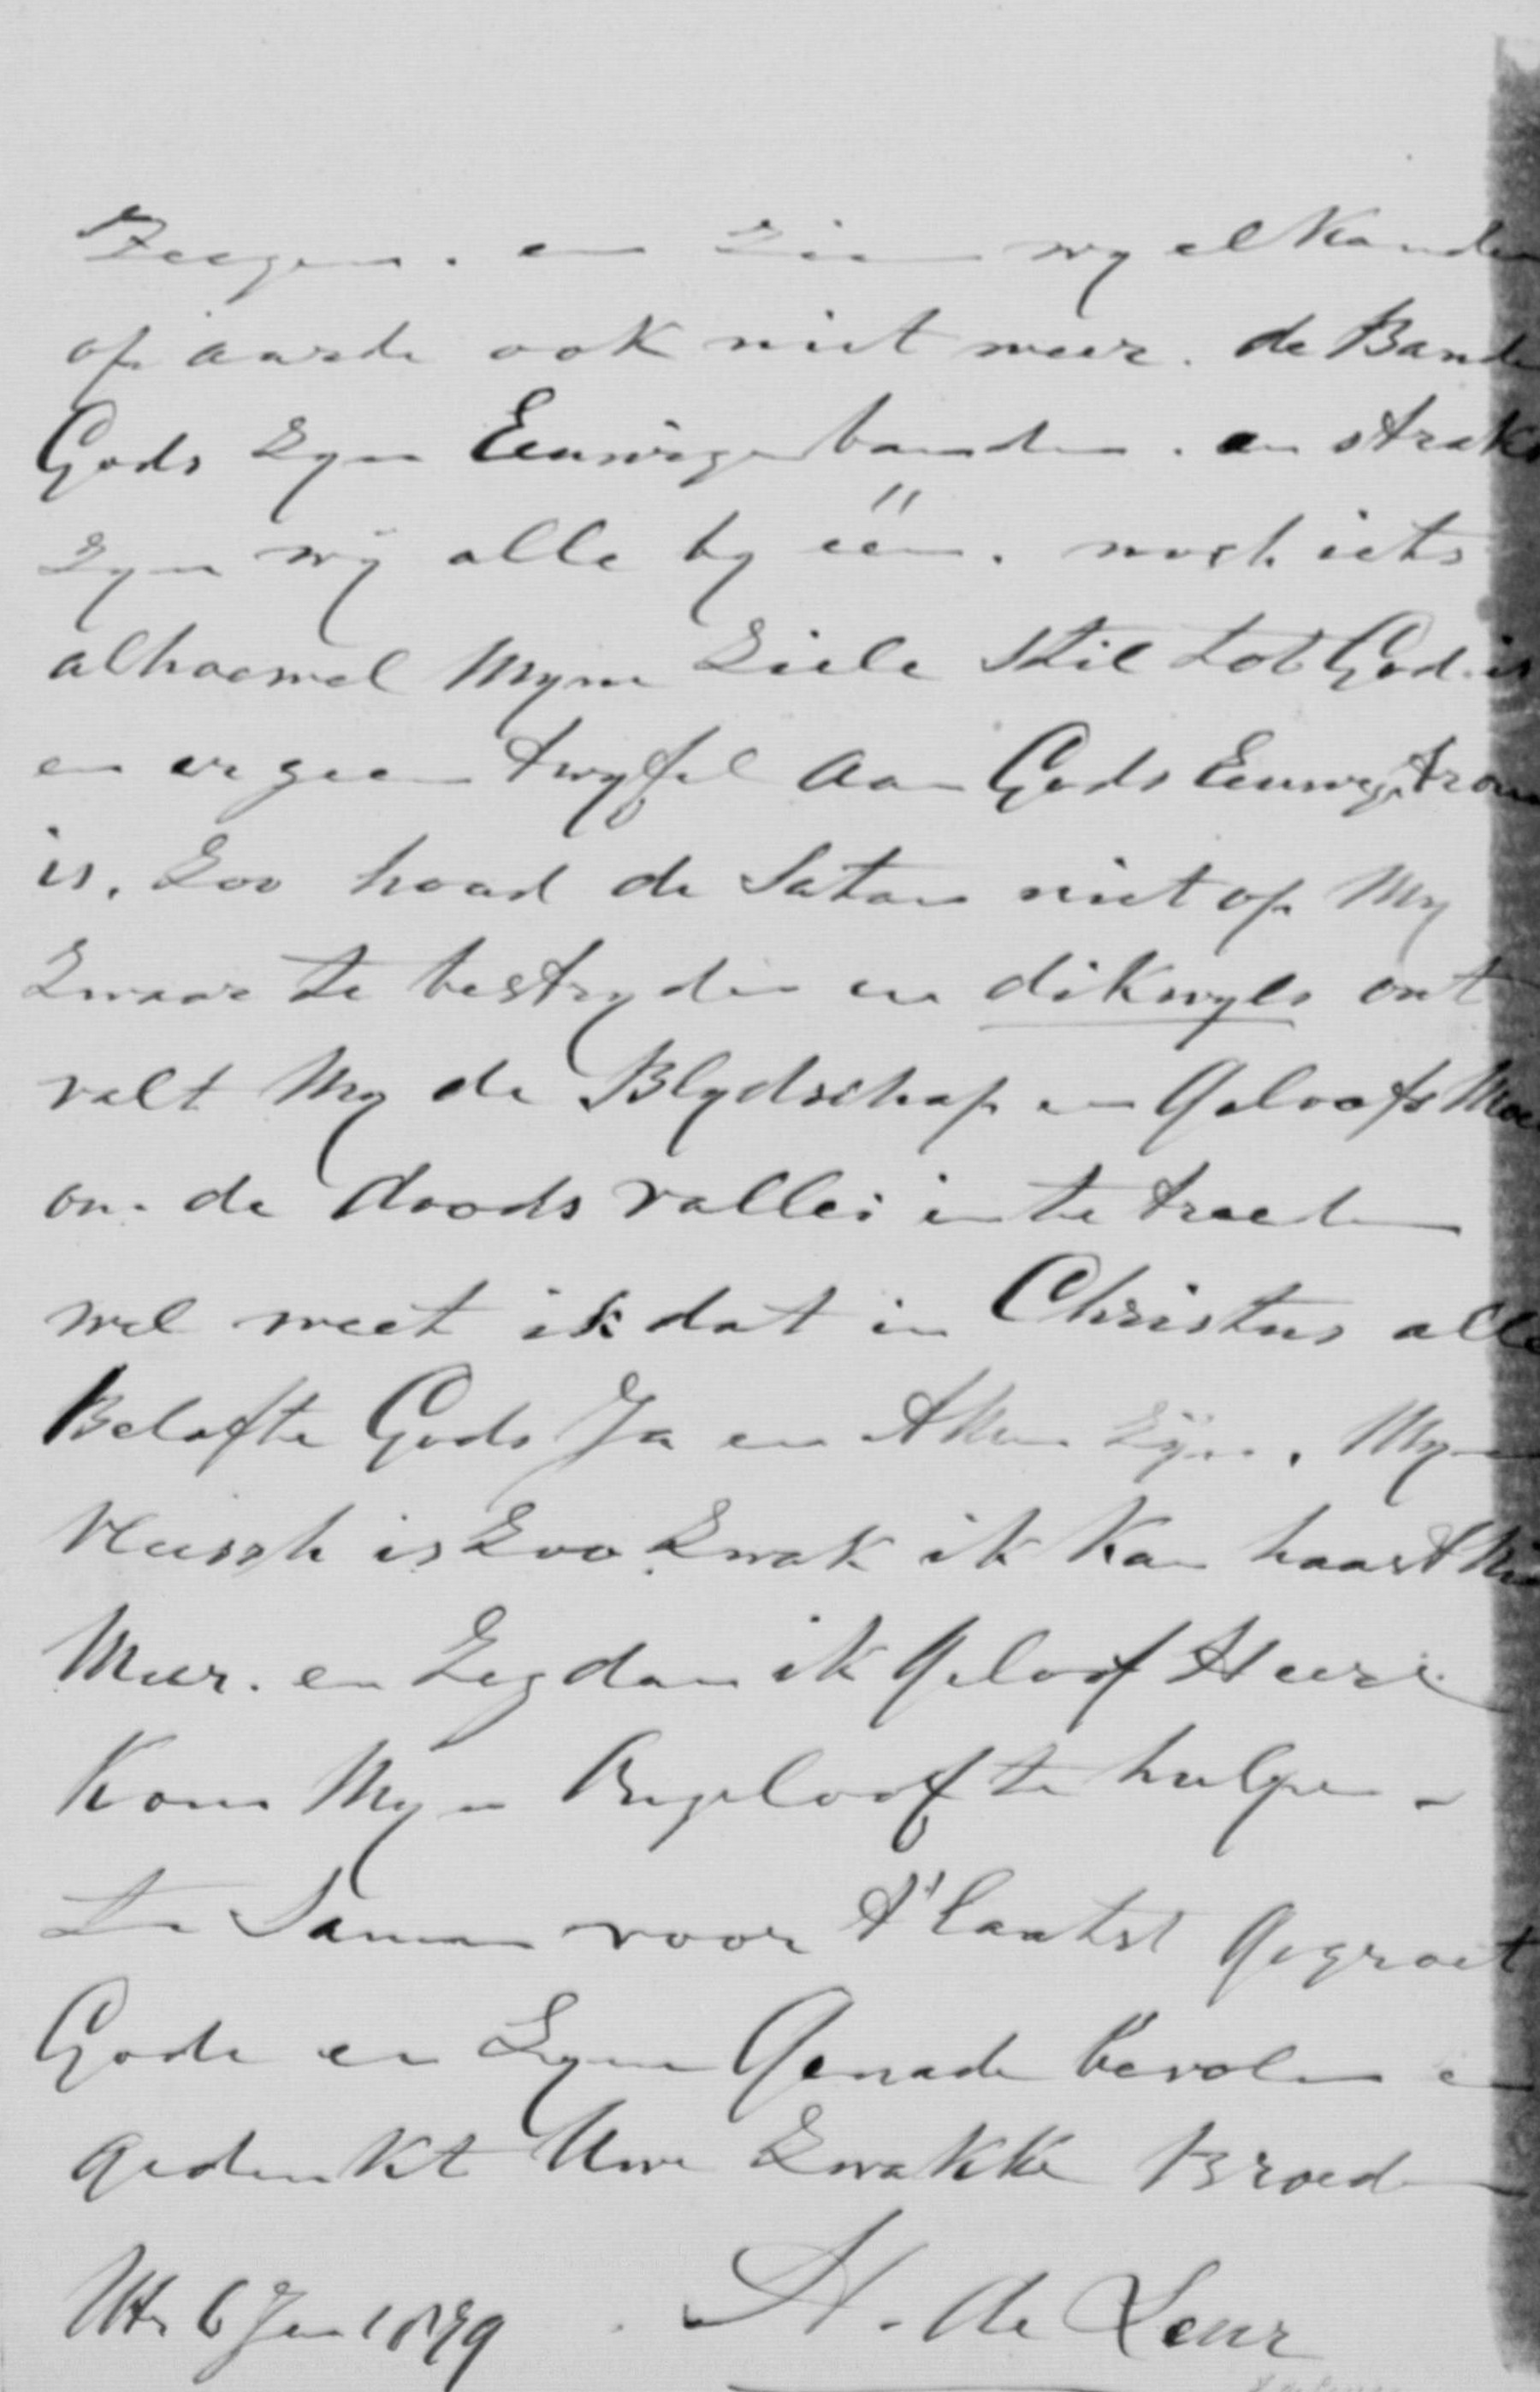 Zeegen. en Zien wy elkander
op aarde ook niet meer. de Bande
Gods Zyn Eeuwige banden. en straks
Zyn wij alle by één. noch iets
alhoewel Myne Ziele Stil tot God is
en er geen twyfel aan Gods Eeuwige trouw
is. Zoo houd de Satan niet op My
Zwaar te bestryden en dikwyls ont
valt My de Blydschap en Geloofs Moed
om de doods vallei in te treeden
wel weet ik dat in Christus alle
Belofte Gods Ja en Amen Zÿn. Myn
Vleesch is Zoo Zwak ik kan haast Niet
Meer. en Zeg dan ik Geloof Heere
Kom Myn Ongeloof te hulpen
te Samen voor t'laatst Gegroet
Gode en Zyne Genade bevolen en
Gedenkt Uwe Zwakke Broeder
Utr 6 Jan 1879 H. de Leur